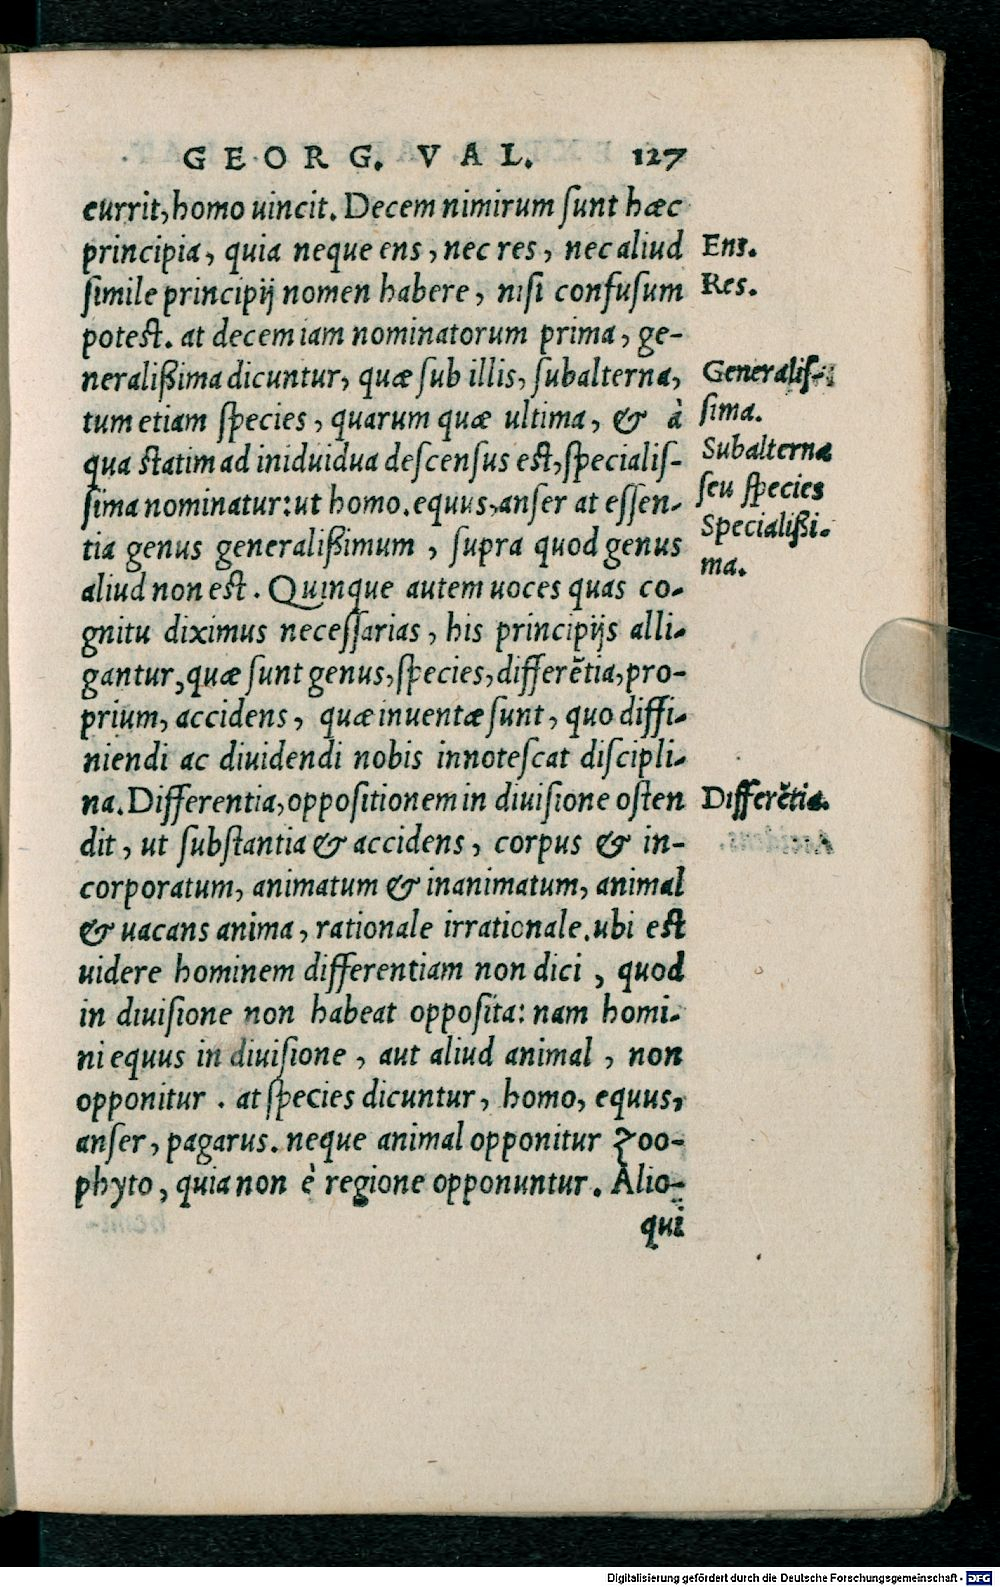 GEORG. VAL. 127
currit, homo uincit. Decem nimirum ſunt hæc
principia, quia neque ens, nec res, nec aliud
ſimile principij nomen habere, niſi confuſum
poteſt. at decem iam nominatorum prima, ge-
neralißima dicuntur, quæ ſub illis, ſubalterna,
tum etiam ſpecies, quarum quæ ultima, & à
qua ſtatim ad iniduidua deſcenſus eſt, ſpecialiſ-
ſima nominatur: ut homo. equus, anſer at eſſen-
tia genus generalißimum, ſupra quod genus
aliud non eſt. Quinque autem uoces quas co-
gnitu diximus neceſſarias, his principijs alli-
gantur, quæ ſunt genus, ſpecies, differẽtia, pro-
prium, accidens, quæ inuentæ ſunt, quo diffi-
niendi ac diuidendi nobis innoteſcat diſcipli-
na. Differentia, oppoſitionem in diuiſione oſten
dit, ut ſubſtantia & accidens, corpus & in-
corporatum, animatum & inanimatum, animal
& uacans anima, rationale irrationale. ubi eſt
uidere hominem differentiam non dici, quod
in diuiſione non habeat oppoſita: nam homi-
ni equus in diuiſione, aut aliud animal, non
opponitur. at ſpecies dicuntur, homo, equus,
anſer, pagarus. neque animal opponitur zoo-
phyto, quia non è regione opponuntur. Alio-
qui
Ens.
Res.
Generaliſ-
ſima.
Subalterna
ſeu ſpecies
Specialißi-
ma.
Differẽtia.
Digitalisierung gefördert durch die Deutsche Forschungsgemeinschaft - DFG